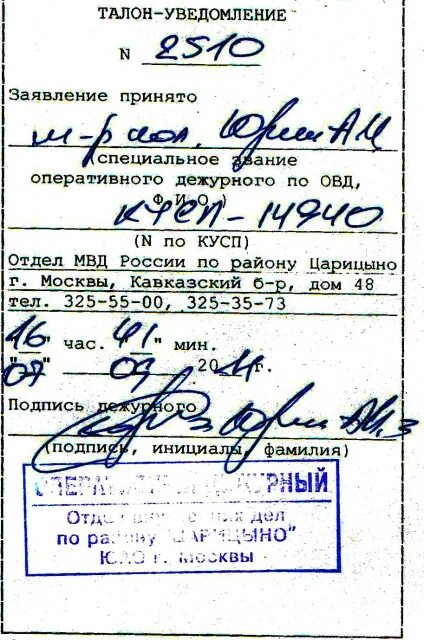 ТАЛОН-УВЕДОМЛЕНИЕ
N 2510
Заявление принято
м-р пол.
(специальное звание
оперативного дежурного по ОВД,
Ф.И.О.)
КУСП-14940
(N по КУСП)
Отдел МВД России по району Царицыно
г. Москвы, Кавказский б-р, дом 48
тел. 325-55-00, 325-35-73
"16" час. "41" мин.
"07" 09 2011г.
Подпись дежурного
(подпись, инициалы, фамилия)
ОПЕРАТИВНЫЙ ДЕЖУРНЫЙ
Отдел внутренних дел
по району "ЦАРИЦЫНО"
ЮАО г. Москвы